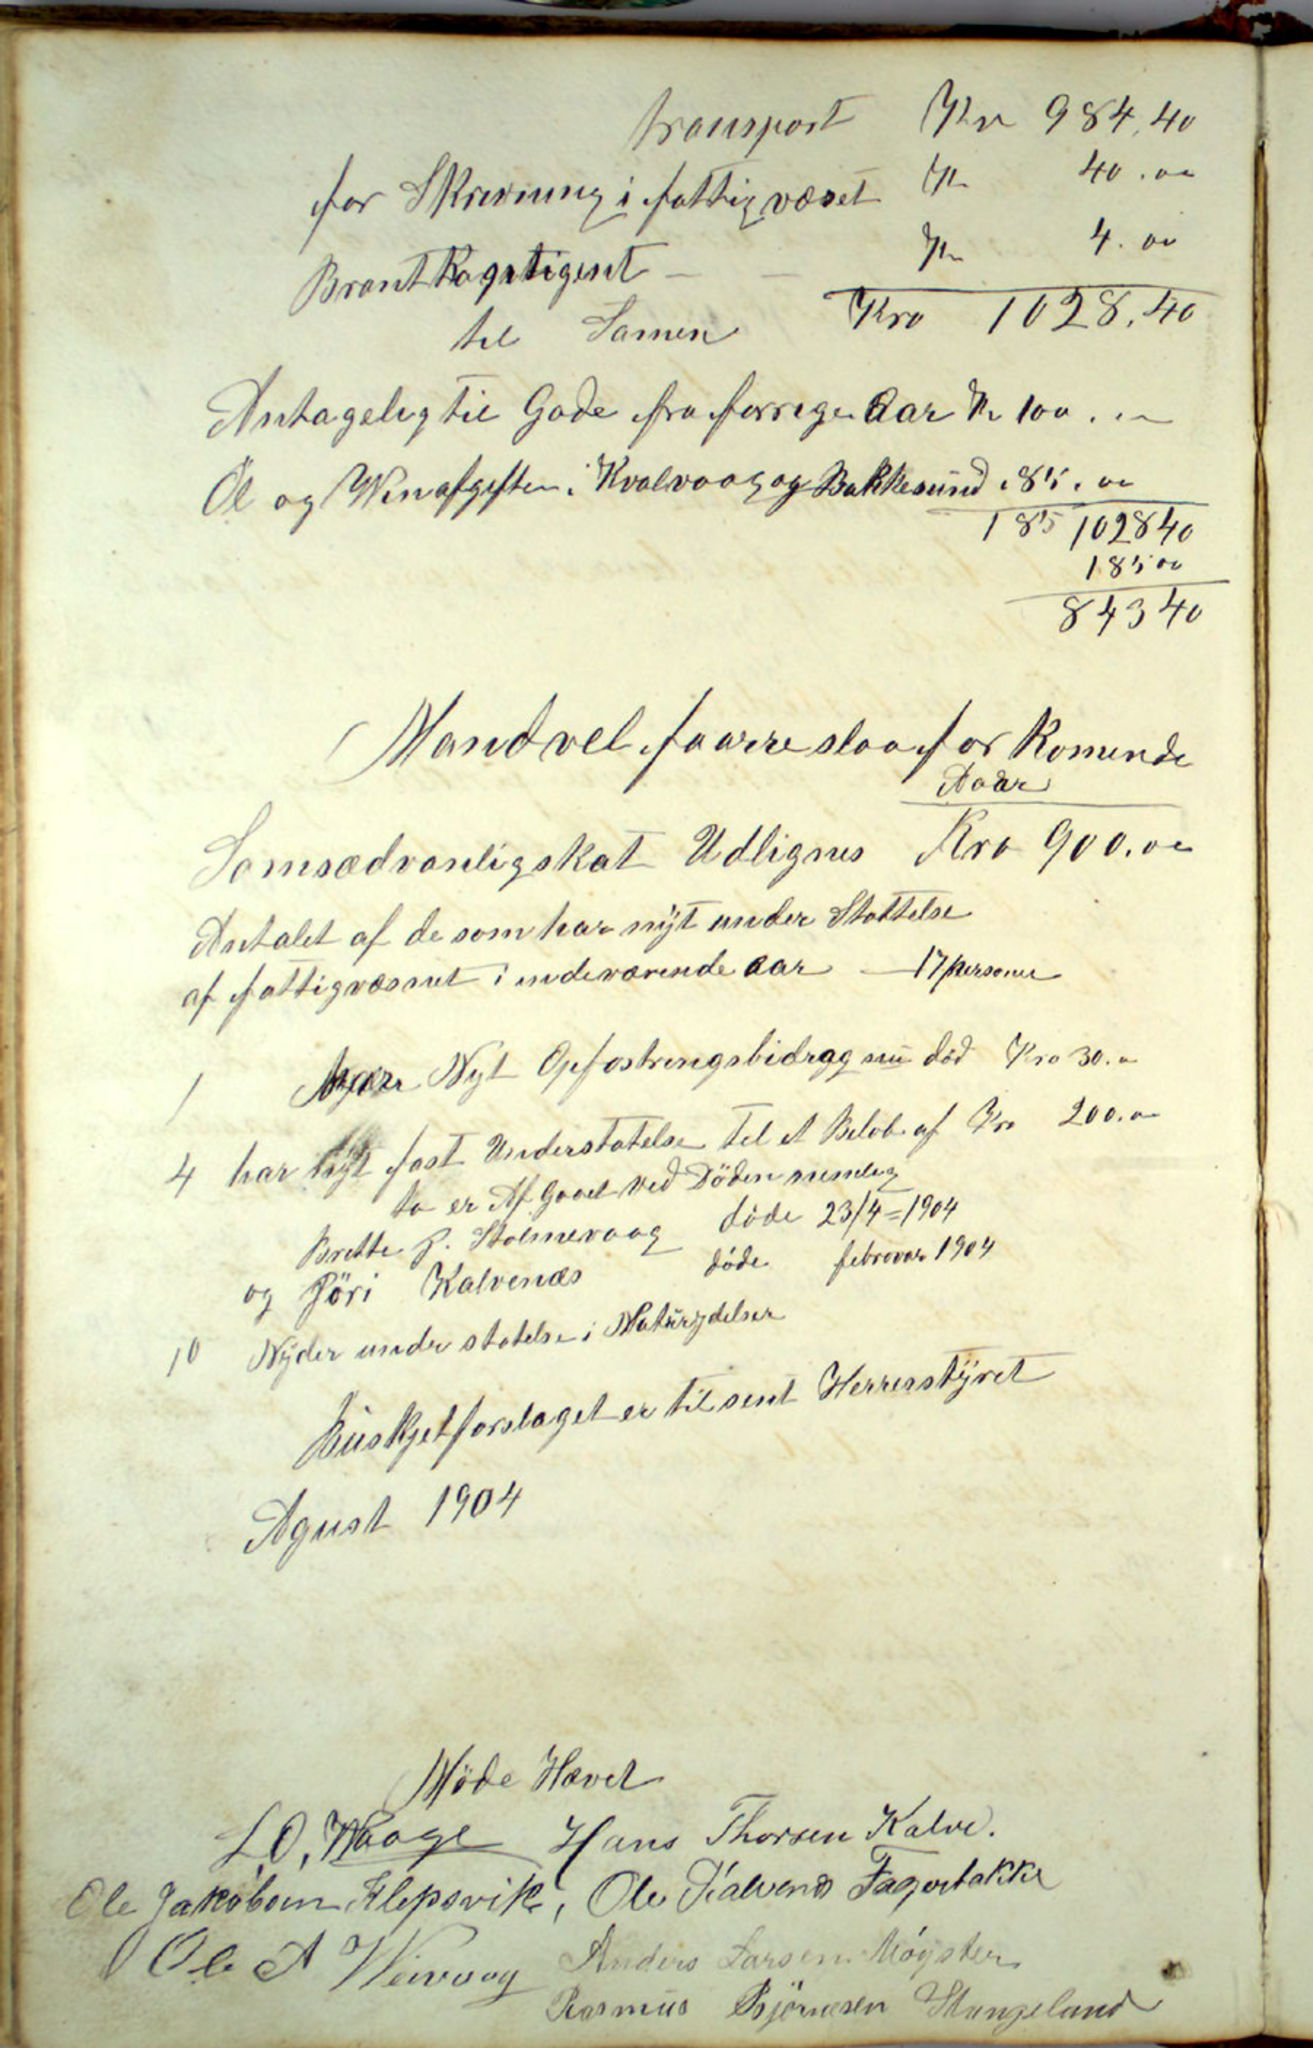 transport Kr 984,40
for Skrivning i fattigvæset Kr 40.00
Brant Kogntigent — — Kr 4.00
til Samen Kro 1028,40
Antageligtil Gode fra forrige Aar Kr 100.00
Öl og Vinafgiften i Kvalvaag og Bakkesund 85.00
185 102840
18500
84340
Mand vel faarre slaa for Komende
Aaar
Somsædvanligskat Udlignes Kro 900.00
Antalet af de som har nÿt under Støttelse
af fattigvæsnet i indeværende aar — 17 personer
1 Nyt Opfostringsbidrag nu död Kro 30.00
4 har nÿt fast Understøtelse til et Beløb af Kro 200.00
to er Af Gaaet ved Döden nemlig
Brette P. Stolmevaag döde 23/4=1904
og Jöri Kalvenæs döde februar 1904
10 Nÿder under støtelse i Naturÿdelser
Buskjetforslaget er tilsent Herrerstÿret
Agust 1904
Möde Hævet
L.O, Waage Hans Thorsen Kalve.
Ole Jakobsen Flepsvik, Ole Kalvenes Fagerbakke
Ole A Veivaag Anders Larsen Möÿster
Rasmus Bjørnesen Stangeland